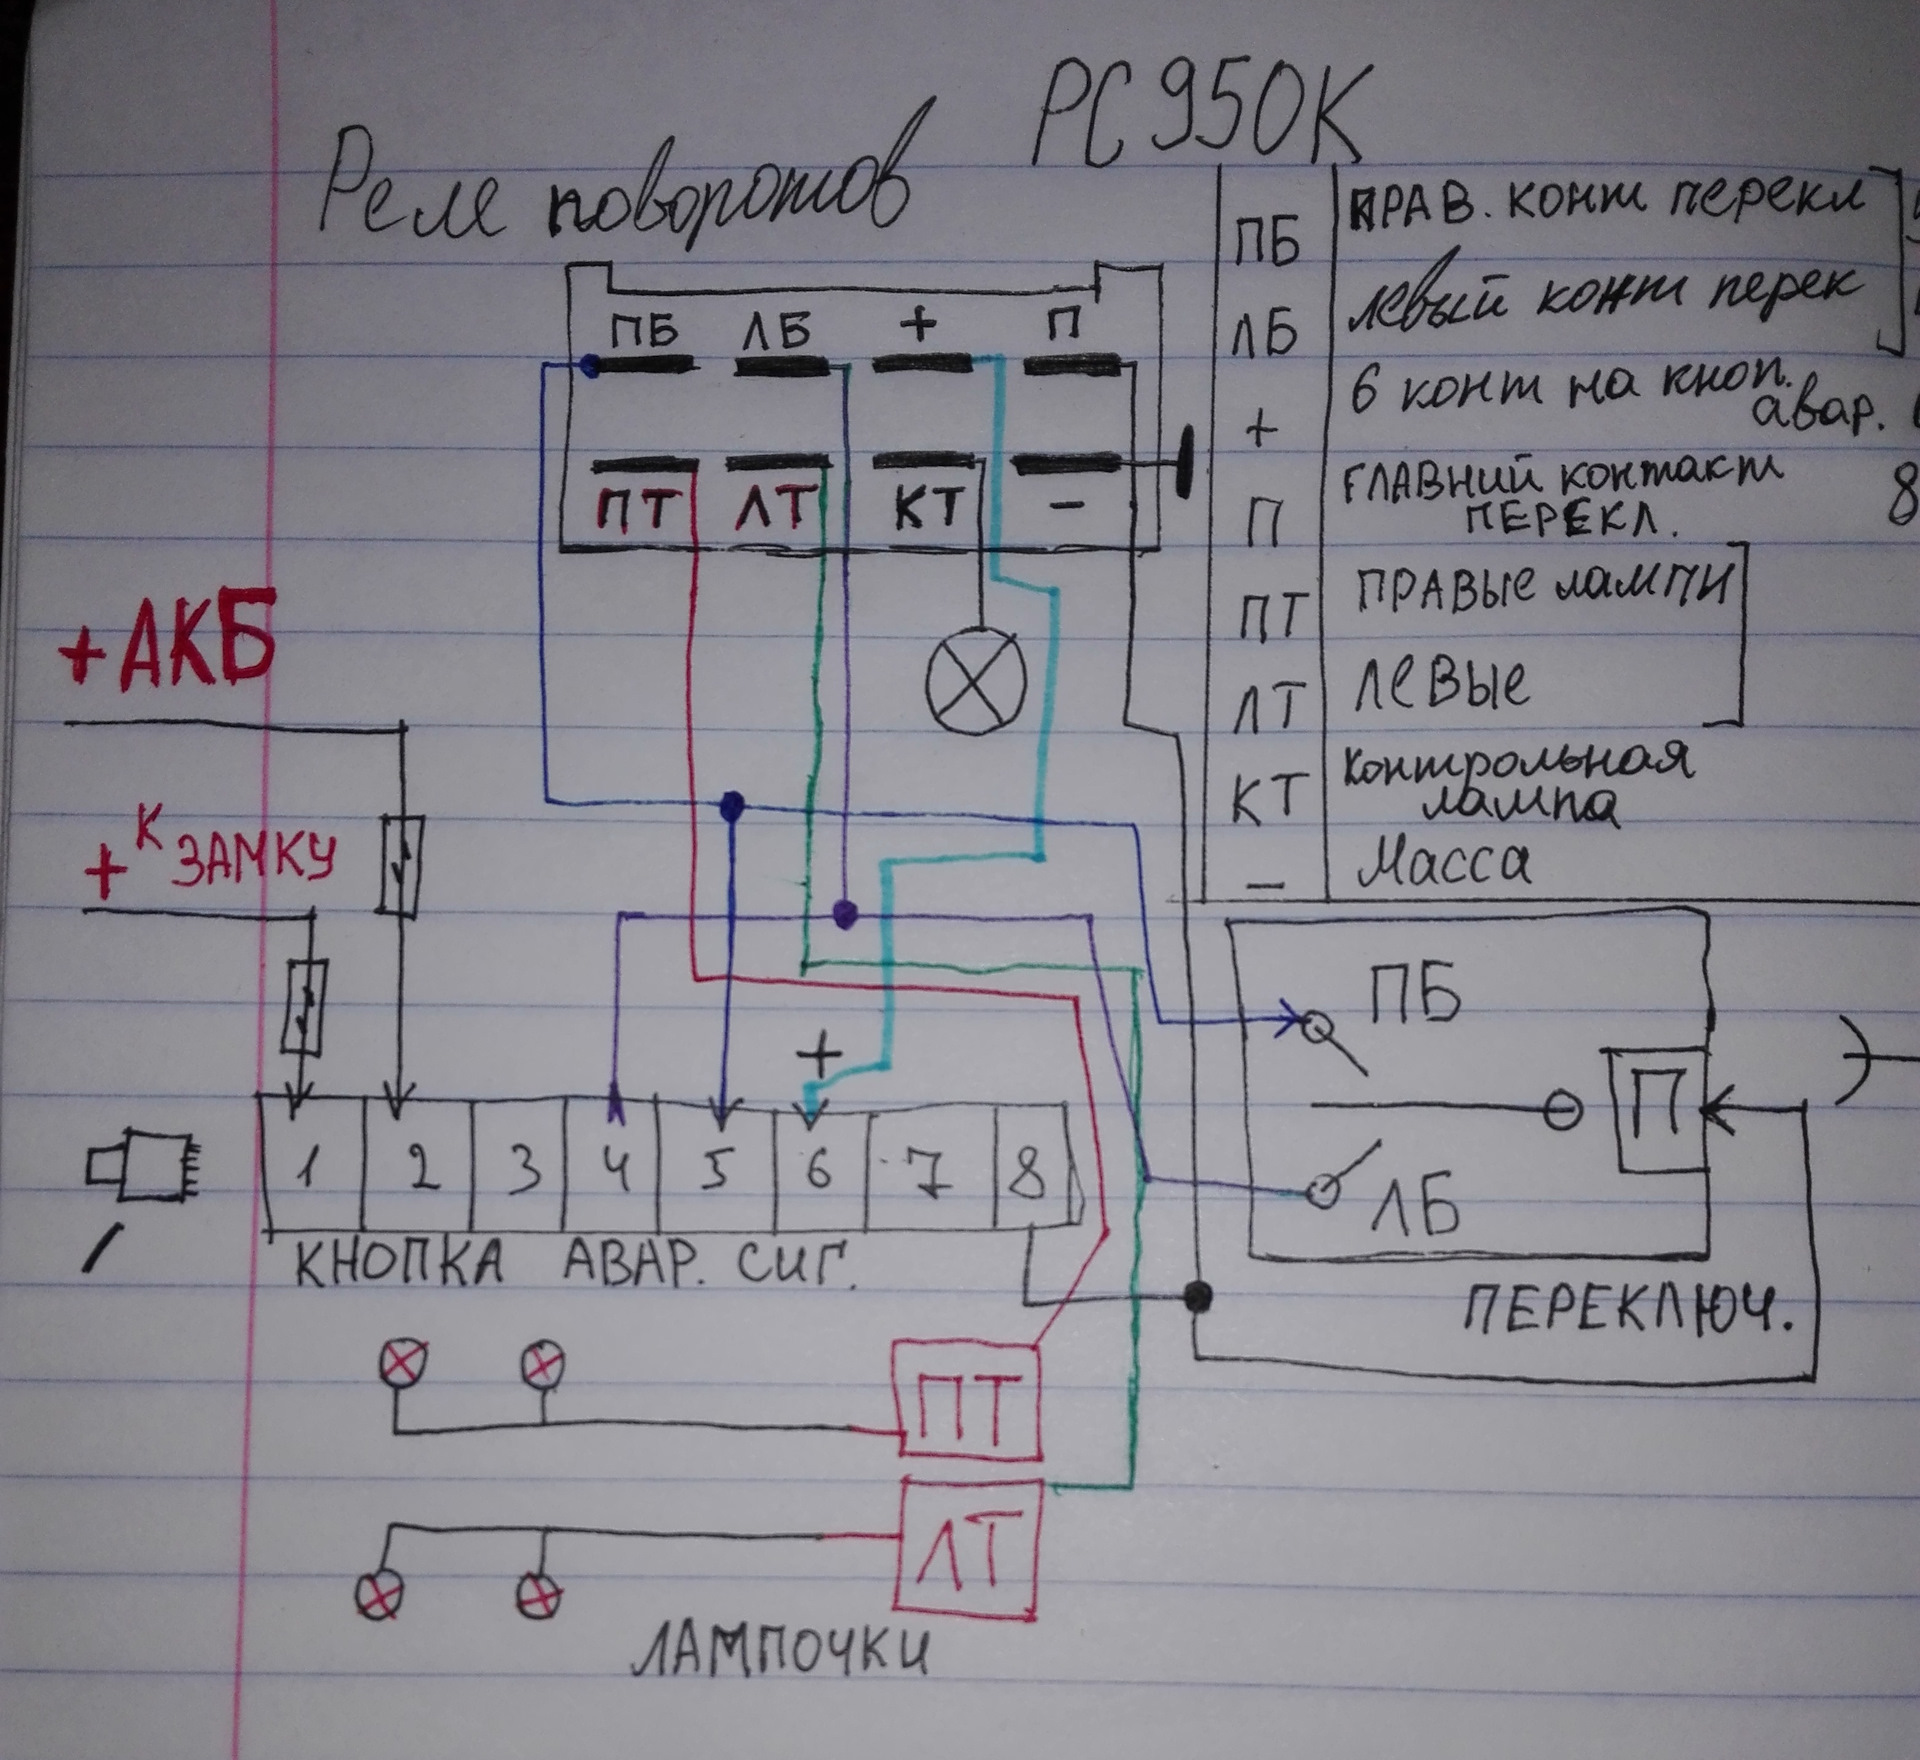 Реле поворотов РС950К
ПБ ЛБ + П
ПТ ЛТ КТ −
ПБ ПРАВ. конт перекл
ЛБ левый конт перек
+ 6 конт на кноп.
авар.
П ГЛАВНИЙ контакт 8
ПЕРЕКЛ.
ПТ ПРАВЫЕ лампи
ЛТ ЛЕВЫЕ
КТ контрольная
лампа
− Масса
+АКБ
+ К ЗАМКУ
+
1 2 3 4 5 6 7 8
КНОПКА АВАР. СИГ.
ПБ
П
ЛБ
ПЕРЕКЛЮЧ.
ПТ
ЛТ
ЛАМПОЧКИ